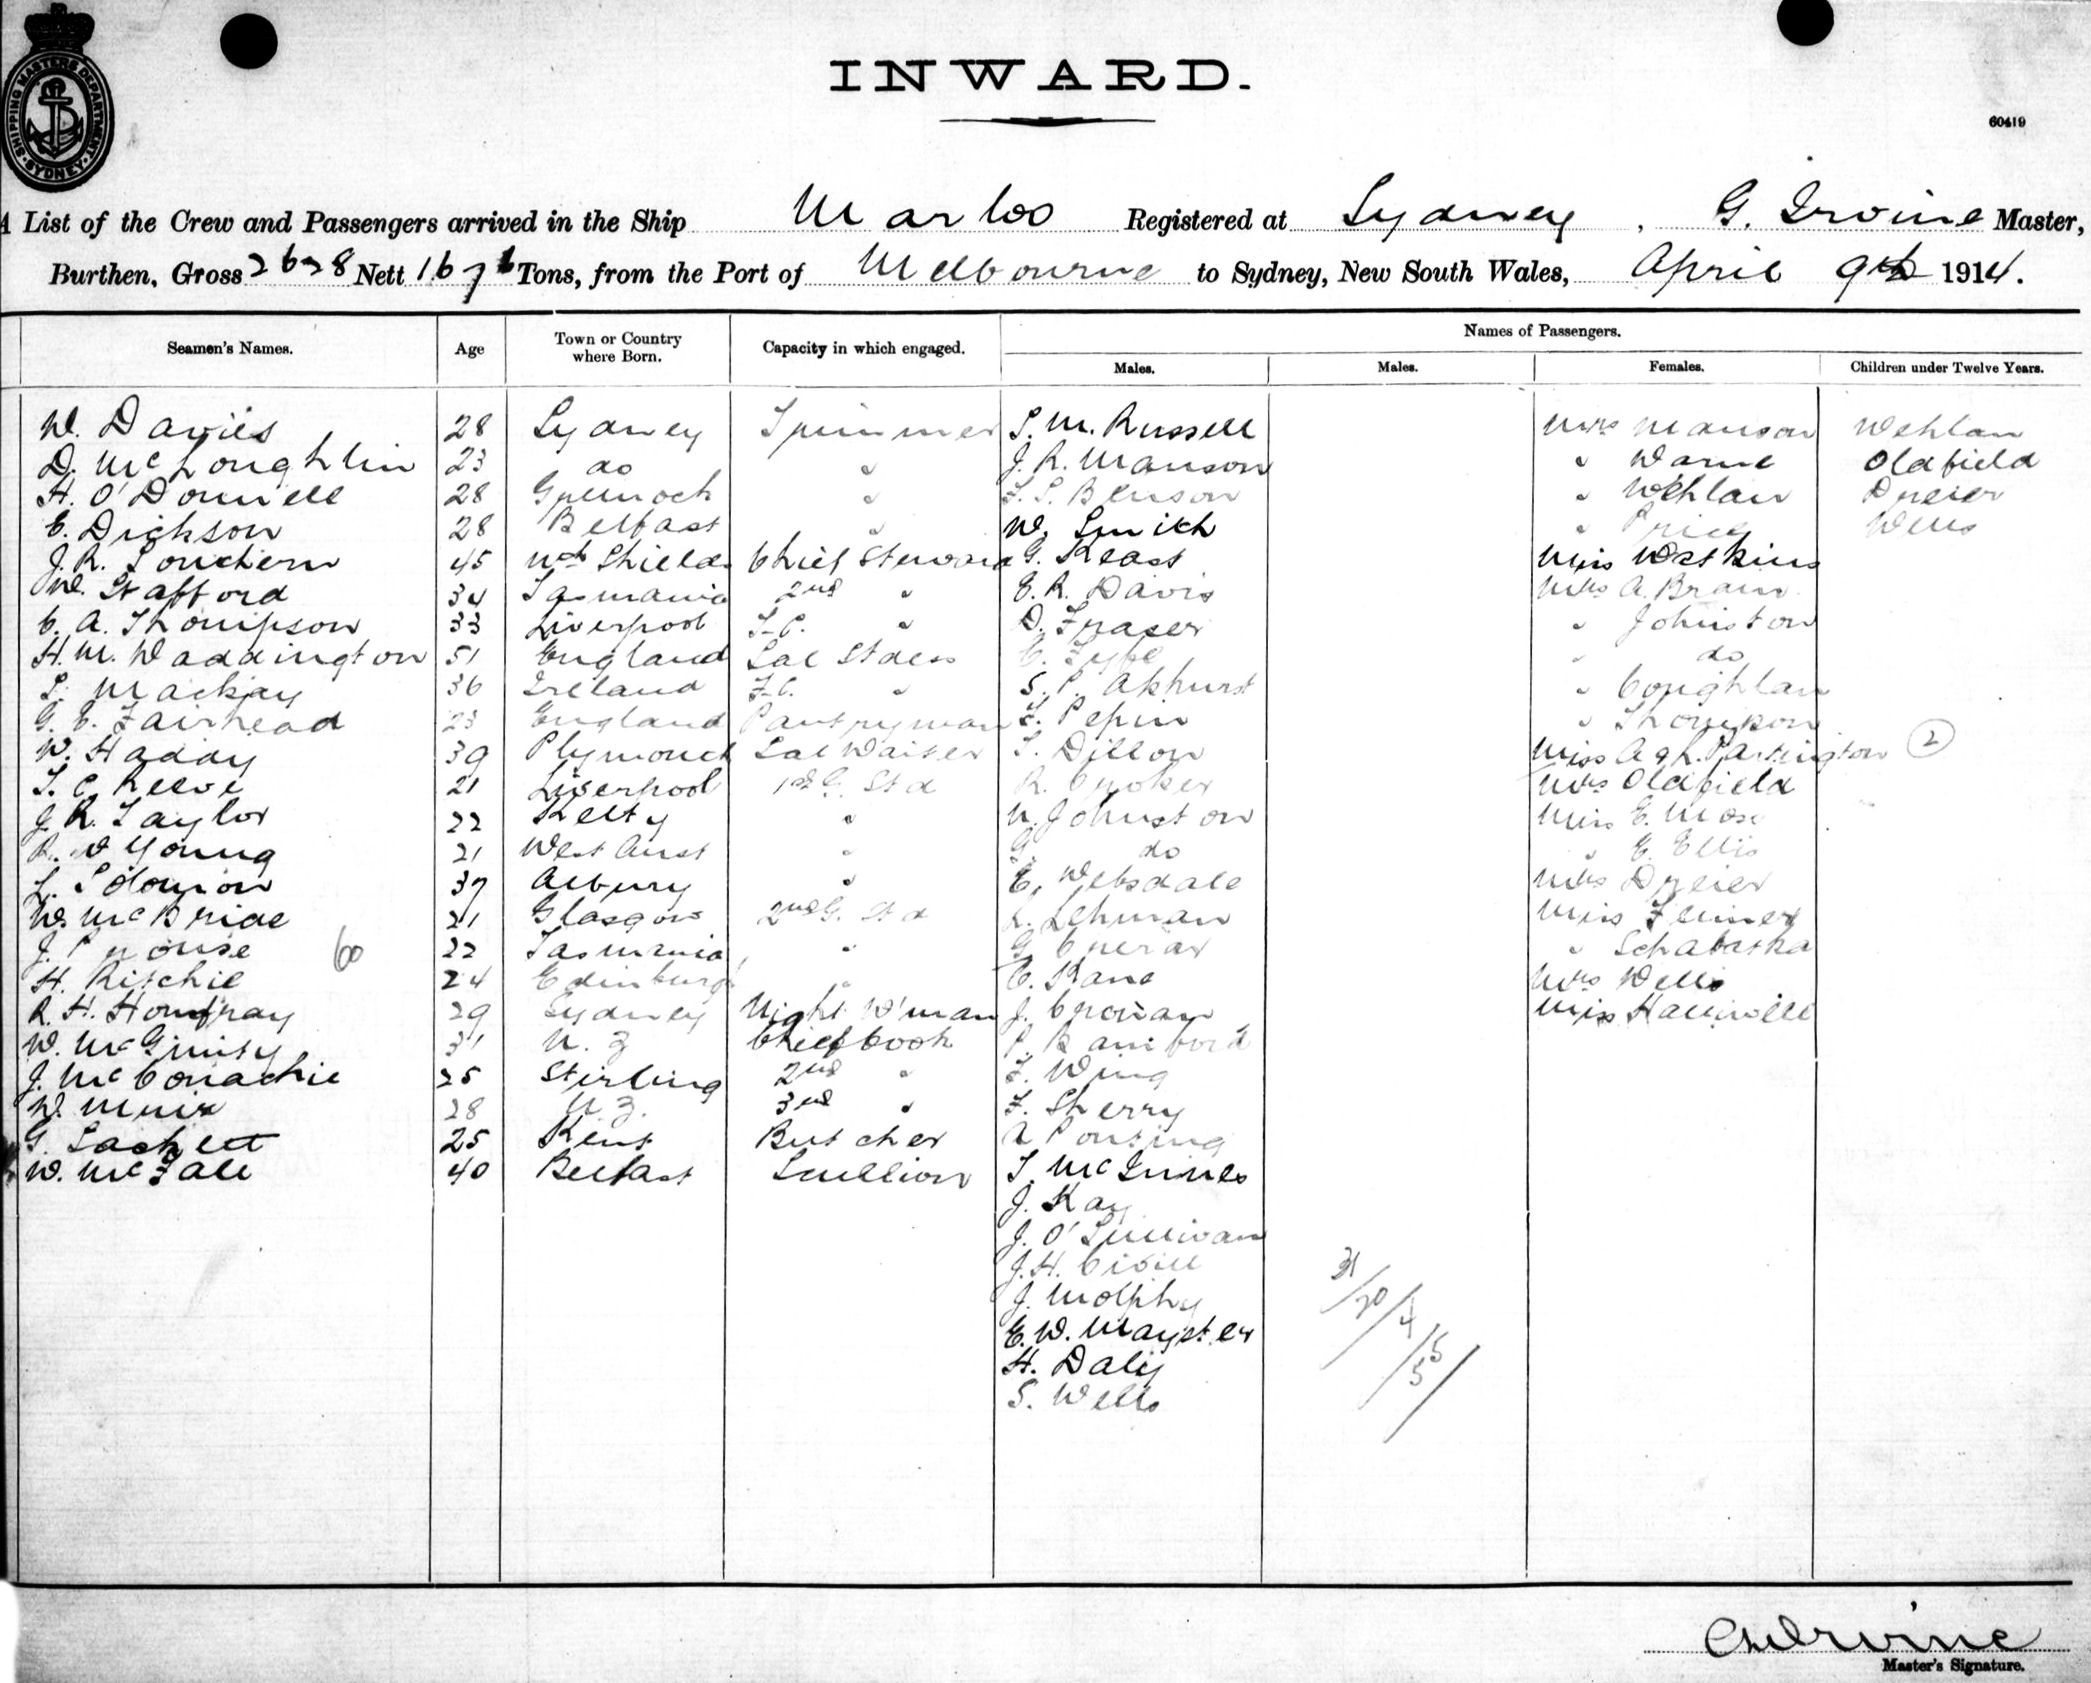 SHIPPING MASTERS DEPARTMENT SYDNEY
INWARD.
60419
A List of the Crew and Passengers arrived in the Ship Marloo Registered at Sydney, G. Irvine Master,
Burthen, Gross 2628 Nett 1676 Tons, from the Port of Melbourne to Sydney, New South Wales, April 9th 1914.
Names of Passengers.
Seamen's Names. Age Town or Country where Born. Capacity in which engaged. Males. Males. Females. Children under Twelve Years.
W. Davies 28 Sydney Trimmer S. M. Russell Mrs Manson Wehlan
D. McLoughlin 23 do " J. R. Manson " Warne Oldfield
H. O'Donnell 28 Greenock " F. S. Benson " Wehlan Dreier
E. Dickson 28 Belfast " W. Smith " Price Wells
J. R. Southern 45 Nth Shields Chief Steward G. Keast Miss Watkins
W. Stafford 34 Tasmania 2nd " E. R. Davis Mrs A. Brain
C. A. Thompson 33 Liverpool F-C. " D. Fraser " Johnston
H. M. Waddington 51 England Sal Stdess C. Fyfe " do
S. Mackay 36 Ireland F-C. " S. P. Akhurst " Coughlan
G. E. Fairhead 23 England Pantryman Pepin " Thompson
W. Haddy 39 Plymouth Sal Waiter T. Dillon Miss A & R. Partington 2
T. C. Reeve 21 Liverpool 1st G. Std R. Croker Mrs Oldfield
J. R. Taylor 22 Kelty " Johnston Miss E. Moss
R. W Young 21 West Aust " G. do " E. Ellis
L. Solomon 37 Albury " E. Websdale Mrs Dreier
W. McBride 21 Glasgow 2nd G. Std Lehman Miss
J. Prouse 60 22 Tasmania " G. "
H. Ritchie 24 Edinburgh " C. Kane Mrs Wells
R. H. Homfray 29 Sydney Night W'man J. Cronan Miss Halliwell
W. McGinity 31 N. Z Chief Cook P. Bamford
J. McConachie 25 Stirling 2nd " F. Wing
W. Muir 28 N. Z. 3rd " F. Sherry
G. Sackett 25 Kent Butcher A Ponting
W. McFall 40 Belfast Scullion T. McInnes
J. Kay
J. O'Sullivan
J. H. Civill
J. Molphy
E. W. Mayster
H. Daly
S. Wells
31/20/4/5
/5/
Irvine
Master's Signature.